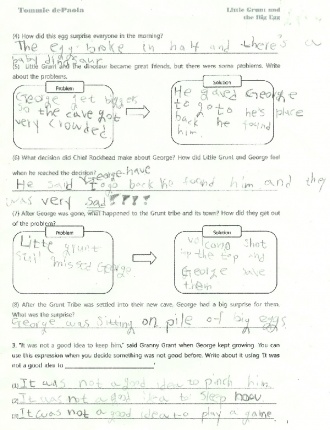 Tommie dePaola
Little Grunt and
the Big Egg
(4) How did this egg surprise everyone in the morning?
The egg broke in half and there's a
baby dinosaur
(5) Little Grant and the dinosaur became great friends, but there were some problems. Write
about the problems.
Problem
Solution
George get bigger
so the cave got
very crowded
He gaved George
to go to he's place
back he found
him
(6) What decision did Chief Rockhead make about George? How did Little Grunt and George feel
when he reached the decision?
George have
He said to go back he found him and they
was very sad
(7) After George was gone, what happened to the Grunt tribe and its town? How did they get out
of the problem?
Problem
Solution
Little grunt
still missed George
volcano shot
up the top and
George save
them
(8) After the Grunt tribe was settled into their new cave, George had a big surprise for them.
What was the surprise?
George was sitting on pile of big eggs
3. "It was not a good idea to keep him," said Granny Grant when George kept growing. You can
use this expression when you decide something was not good before. Write about it using 'It was
not a good idea to
(1) It was not a good idea to pinch him
(2) It was not a good idea to sleep now
(3) It was not a good idea to play a game.